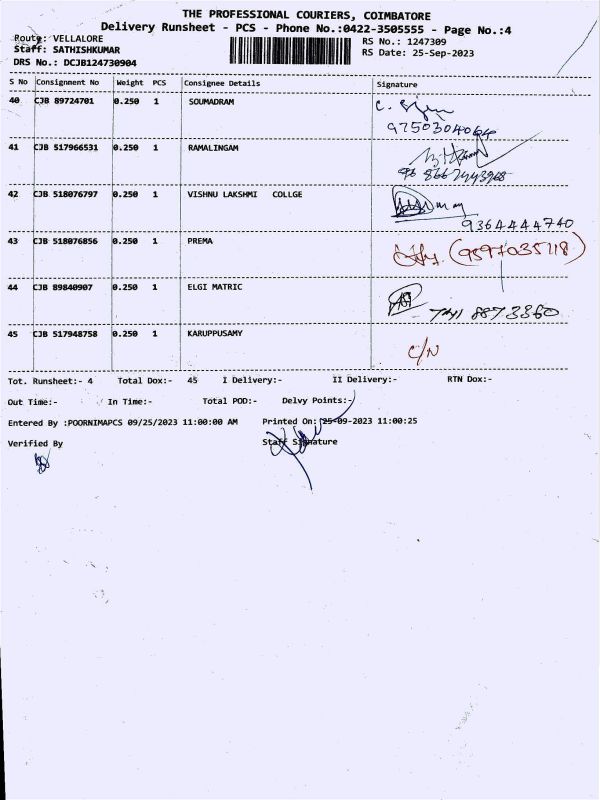 THE PROFESSIONAL COURIERS, COIMBATORE
Delivery Runsheet - PCS - Phone No.:0422-3505555 - Page No.:4
Route: VELLALORE
RS No.: 1247309
Staff: SATHISHKUMAR
RS Date: 25-Sep-2023
DRS No.: DCJB124730904
S No Consignment No Weight PCS Consignee Details Signature
40 CJB 89724701 0.250 1 SOUMADRAM
9750304064
41 CJB 517966531 0.250 1 RAMALINGAM
42 CJB 518076797 0.250 1 VISHNU LAKSHMI COLLGE
9364444740
43 CJB 518076856 0.250 1 PREMA
(9597035118)
44 CJB 89840907 0.250 1 ELGI MATRIC
45 CJB 517948758 0.250 1 KARUPPUSAMY
C/N
Tot. Runsheet:- 4 Total Dox:- 45 I Delivery:- II Delivery:- RTN Dox:-
Out Time:- In Time:- Total POD:- Delvy Points:-
Entered By :POORNIMAPCS 09/25/2023 11:00:00 AM Printed On: 25-09-2023 11:00:25
Verified By Staff Signature